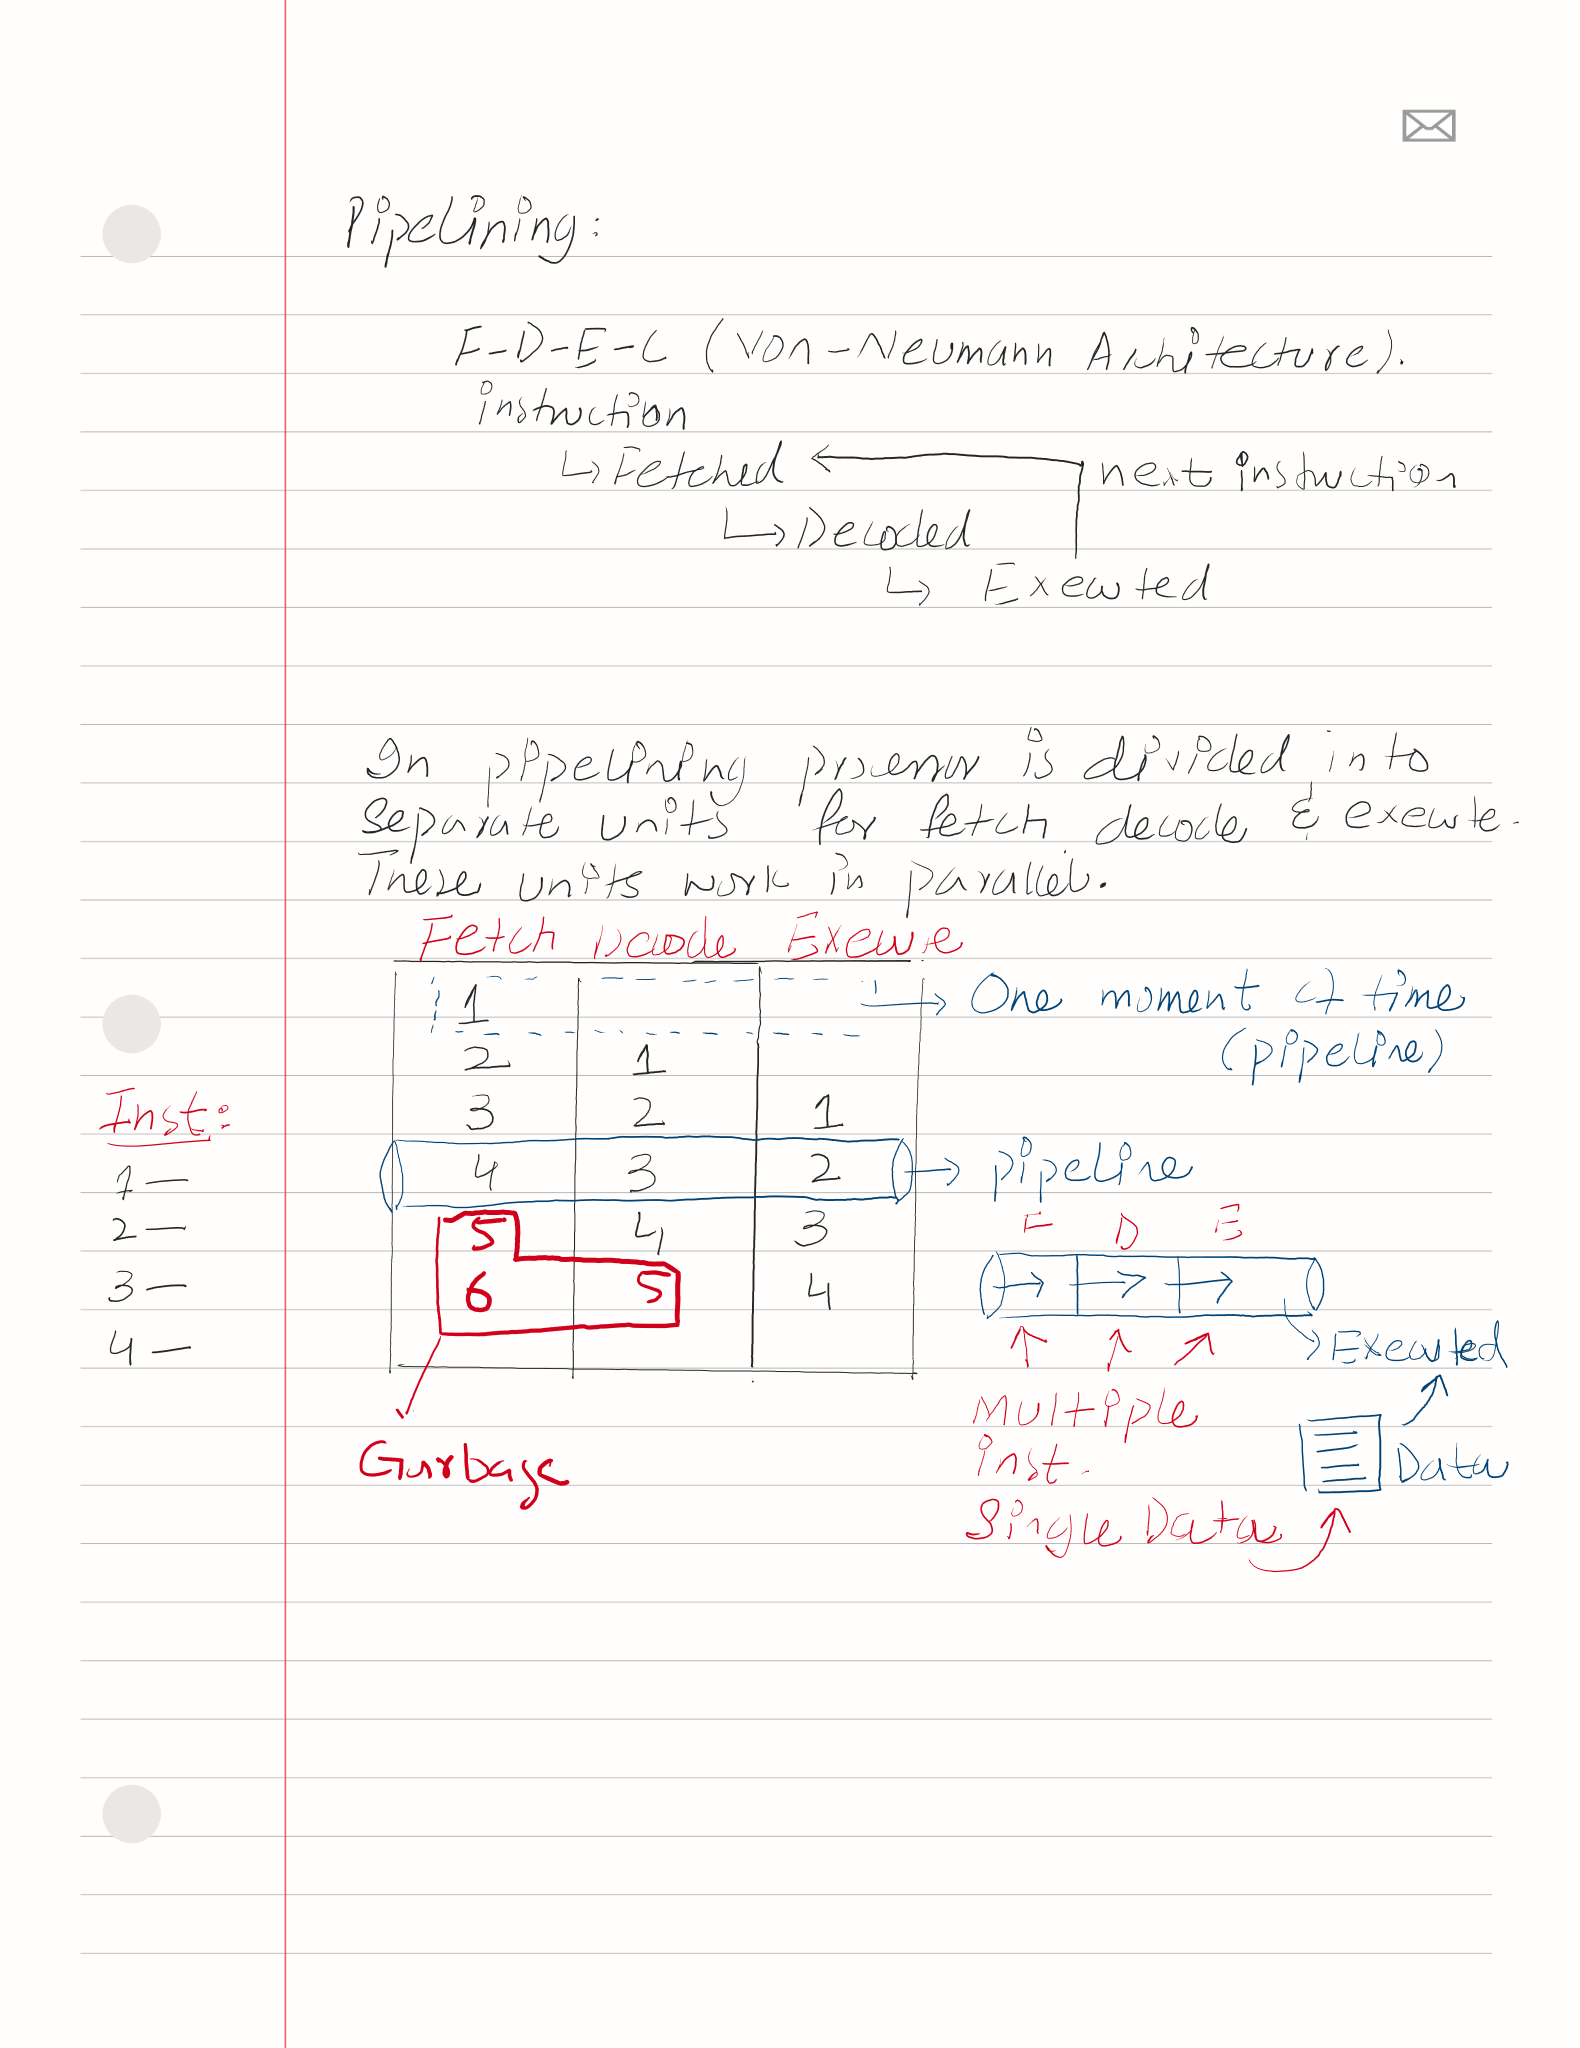 Pipelining:
F-D-E-C (Von-Neumann Architecture).
instruction
↳ Fetched ← next instruction
↳ Decoded
↳ Executed
In pipelining processor is divided into
separate units for fetch decode & execute.
These units work in parallel.
Fetch Decode Execute
1 → One moment of time
(pipeline)
2 1
Inst:
3 2 1
1 —
4 3 2 → pipeline
2 —
5 4 3
F D E
3 —
6 5 4
4 —
→ Executed
Multiple
inst.
Data
Garbage
Single Data